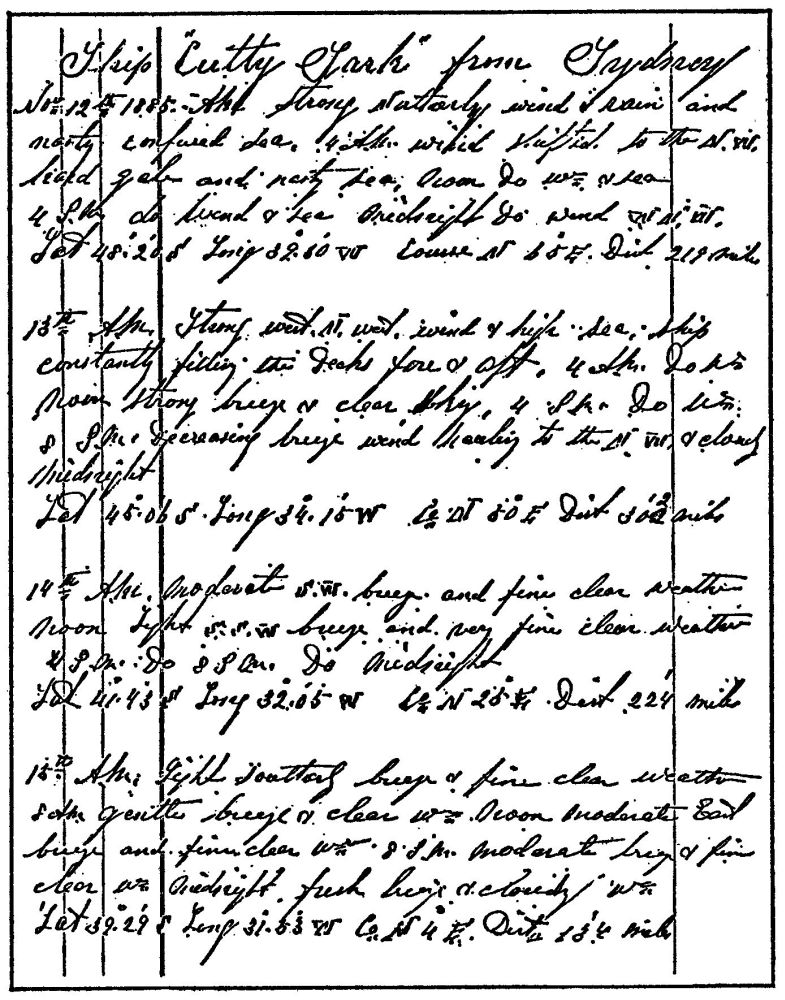 Ship "Cutty Sark" from Sydney
Nov 12th 1885. AM. Strong Northerly wind & rain and
nasty confused sea. 4 AM. wind shifted to the N.W.
hard gale and nasty sea, Noon Do wr & sea
4 P.M. do wind & sea Midnight Do wind W.N.W.
Lat 48.20 S Long 39.50 W Course N 65 E. Dist 219 miles
13th AM. Strong west. N. west. wind & high sea, ship
constantly filling the Decks fore & aft, 4 AM. Do wr
Noon strong breeze & clear sky, 4 P.M. Do wr.
8 P.M. Decreasing breeze wind hauling to the N.W. & cloudy
Midnight
Lat 45.06 S. Long 34.15 W Co N 50 E Dist 302 miles
14th AM. Moderate S.W. breeze and fine clear weather
Noon Light S.S.W breeze and very fine clear weather
4 P.M. Do 8 P.M. Do Midnight
Lat 41.43 S Long 32.05 W Co N 25 E. Dist 224 miles
15th AM. Light Southerly breeze & fine clear weather
8 AM gentle breeze & clear wr Noon Moderate East
breeze and fine clear wr 8 P.M. moderate breeze & fine
clear wr Midnight, fresh breeze & cloudy wr
Lat 39.29 S Long 31.53 W Co N 4 E. Dist 134 miles